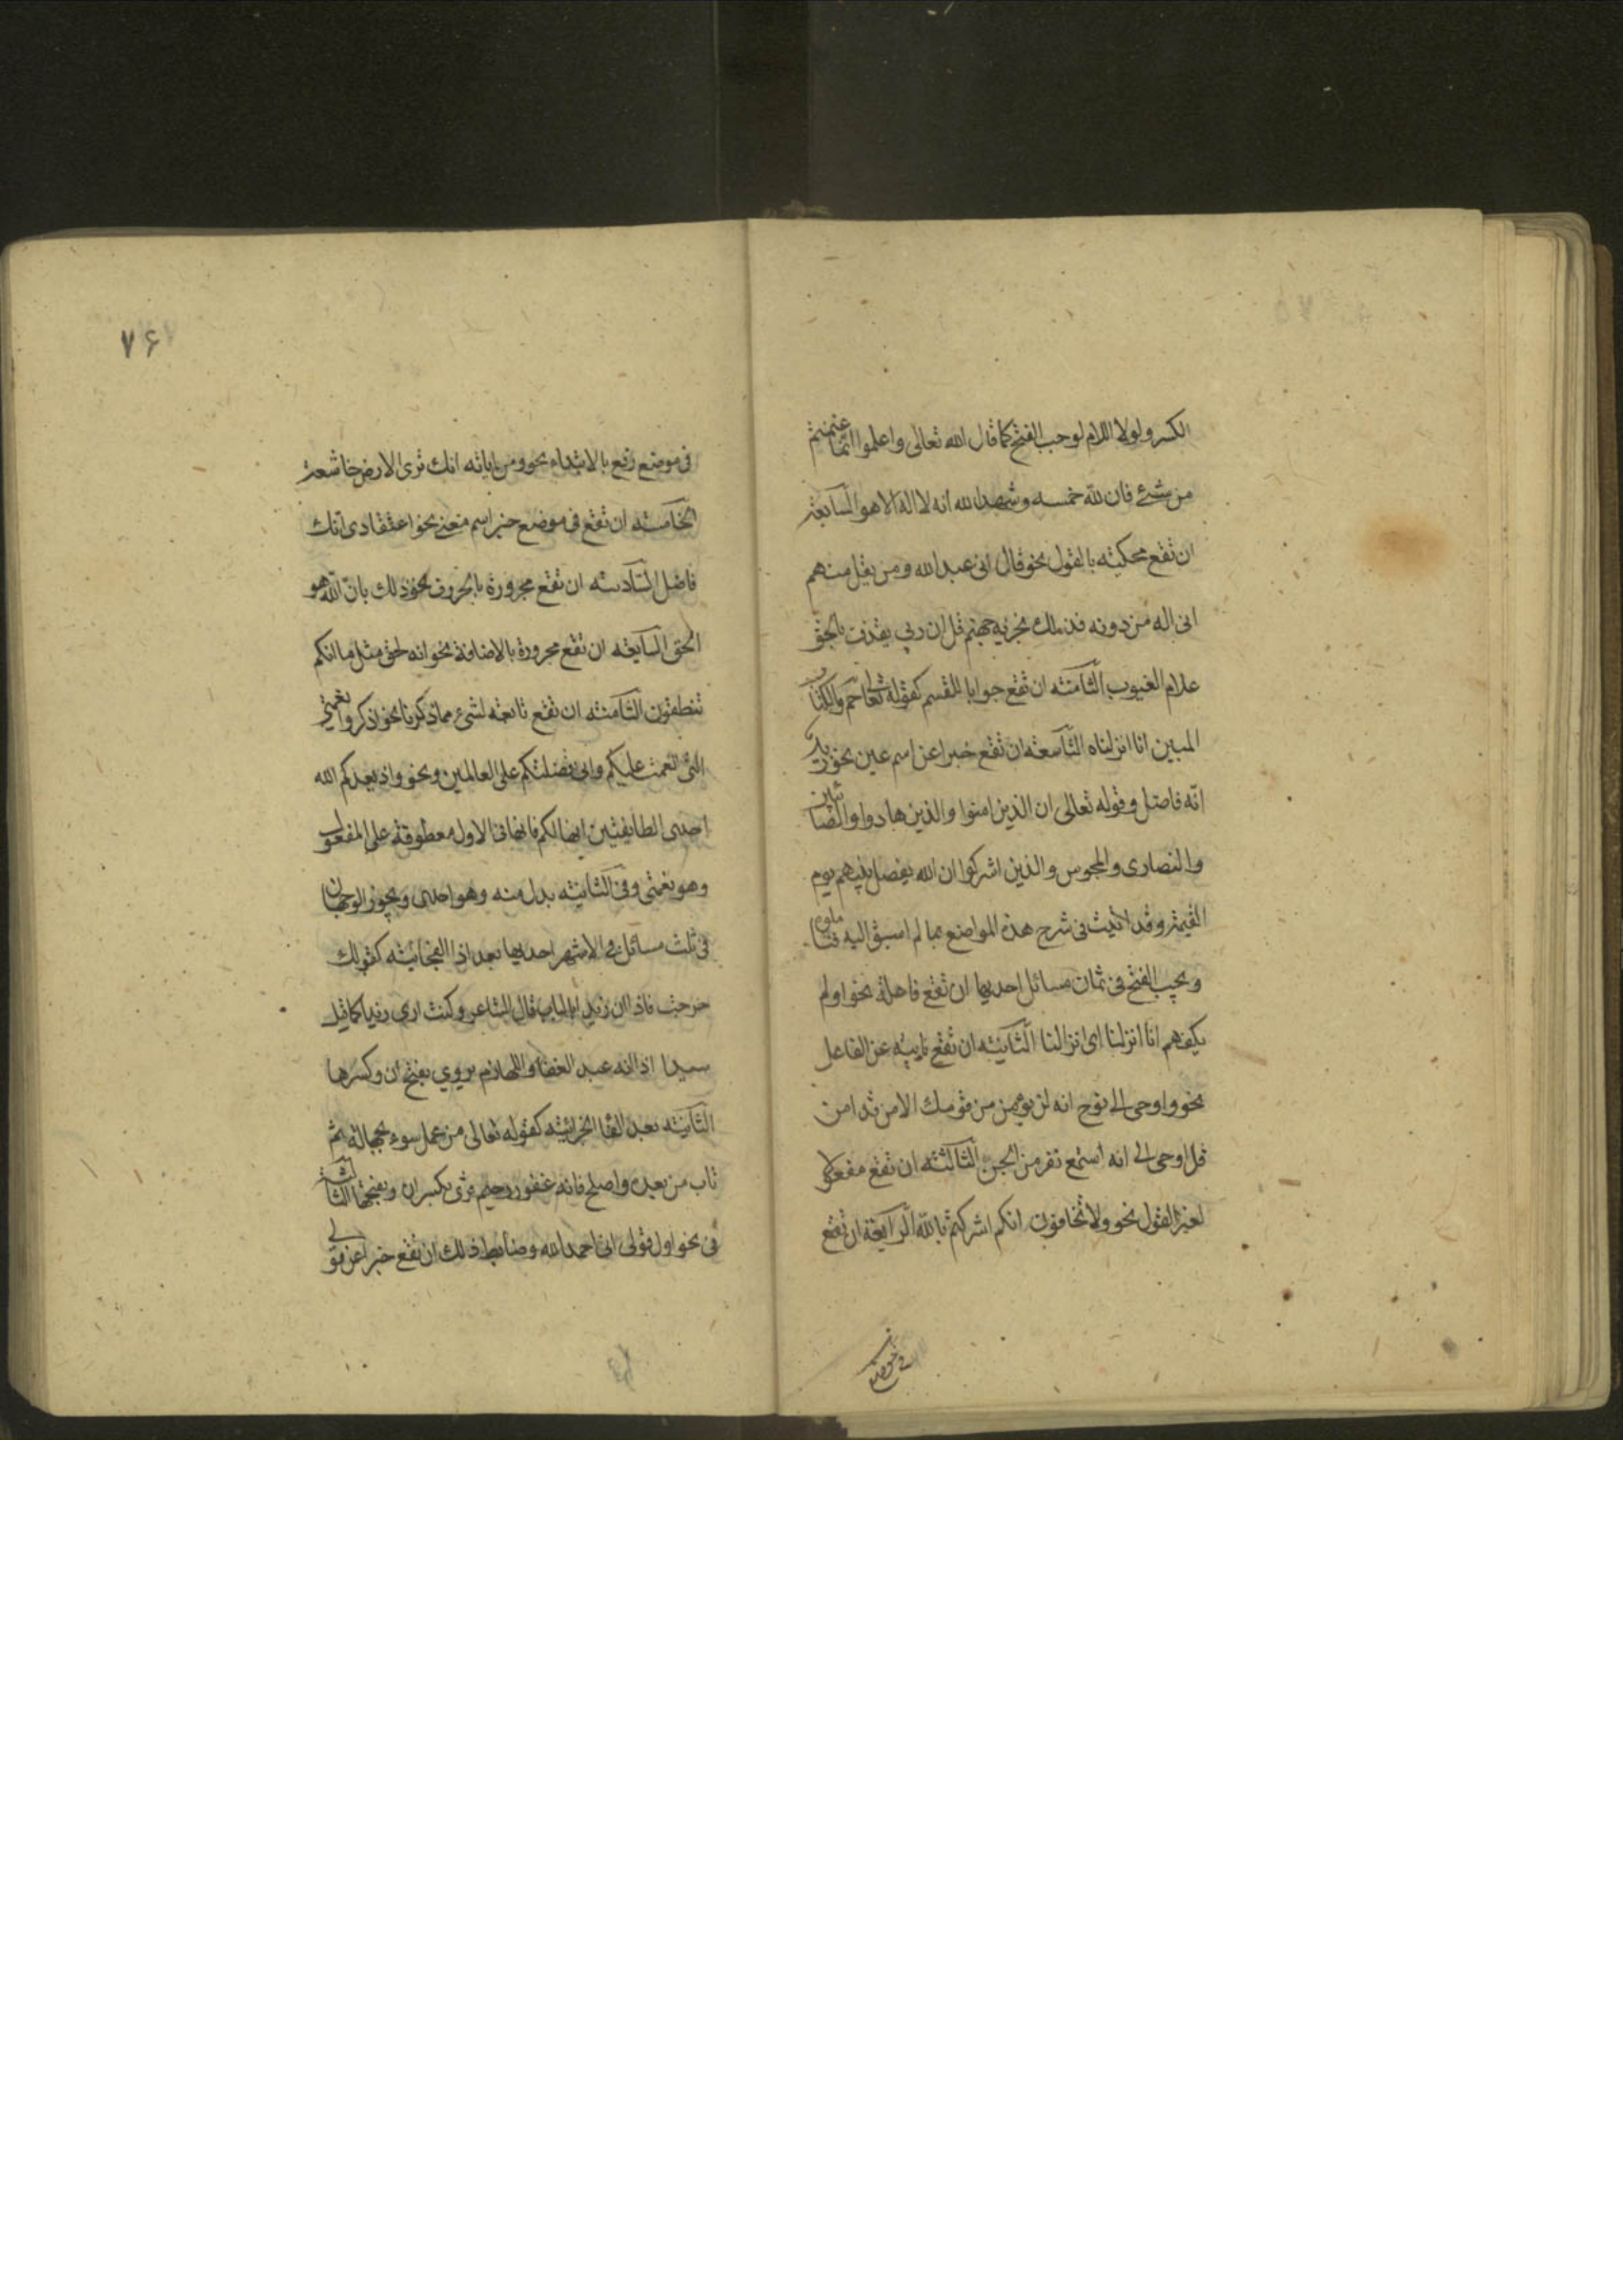 الكسر ولولا اللام لوجب الفتح كما قال الله تعالى واعلموا انما غنمتم
من شئ فان لله خمسه وشهد الله انه لا اله الا هو السابعة
ان تقع محكيته بالقول نحو قال انى عبد الله ومن يقل منهم
انى اله من دونه فذلك نجزيه جهنم قل ان ربى يقذف بالحق
علام الغيوب الثامنته ان تقع جوابا للقسم كقوله تعالى حم والكتاب
المبين انا انزلناه التاسعته ان تقع خبرا عن اسم عين نحو زيد
انه فاضل وقوله تعالى ان الذين امنوا والذين هادوا والصائبين
والنصارى والمجوس والذين اشركوا ان الله يفصل بينهم يوم
القيمة وقد اتيت فى شرح هذه المواضع بما لم اسبق اليه فتاملوه
ويجب الفتح فى ثمان مسائل احديها ان تقع فاعلة نحو اولم
يكفهم انا انزلنا اى انزالنا الثانيته ان تقع نايبه عن الفاعل
نحو واوحى الى نوح انه لن يؤمن من قومك الا من قد امن
قل اوحى الى انه استمع نفر من الجن الثالثته ان تقع مفعولا
لغير القول نحو ولا تخافون انكم اشركتم بالله الرابعة ان تقع
۷۶
فى موضع رفع بالابتداء نحو ومن اياته انك ترى الارض خاشعة
الخامسته ان تقع فى موضع خبر اسم معنى نحو اعتقادى انك
فاضل السادسته ان تقع مجرورة بالحروف نحو ذلك بان الله هو
الحق السابعته ان تقع مجرورة بالاضافة نحو انه لحق مثل ما انكم
تنطقون الثامنته ان تقع تابعته لشئ مما ذكرنا نحو اذكروا نعمتى
التى انعمت عليكم وانى فضلتكم على العالمين ونحو واذ يعدكم الله
احدى الطايفتين انها لكم فانها فى الاول معطوفة على المفعول
وهو نعمتى وفى الثانيته بدل منه وهو احدى ويجوز الوجهان
فى ثلث مسائل فى الاشهر احديها بعد اذا الفجائيته كقولك
خرجت فاذا ان زيدا بالباب قال الشاعر وكنت ارى زيدا كما قيل
سيدا اذا انه عبد القفا واللهازم يروى بفتح ان وكسرها
الثانيته بعد الفا الجزائيته كقوله تعالى من عمل سوء بجهالة ثم
تاب من بعده واصلح فانه غفور رحيم قرئ بكسر ان وبفتحها الثالثة
فى نحو اول قولى انى احمد الله وضابط ذلك ان تقع خبرا عن قول